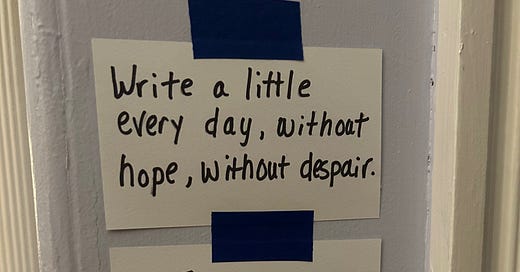 Write a little
every day, without
hope, without despair.